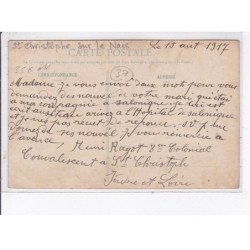 St Christophe sur le Nais Le 15 aout 1917
CARTE POSTALE
CORRESPONDANCE ADRESSE
37
Madame je vous envoie deux mots pour vous
demander des nouvel de votre mari qui était
a ma compagnie a salonique je lui est
écrit aussitôt arriver a l'Hopital de salonique
et je n'es pas reçut de reponce. S V P me
donner de ses nouvel je vous remercie a
l'avance, Henri Ragot 8me Colonial
Convalescent a St Christophe
Indre et Loire